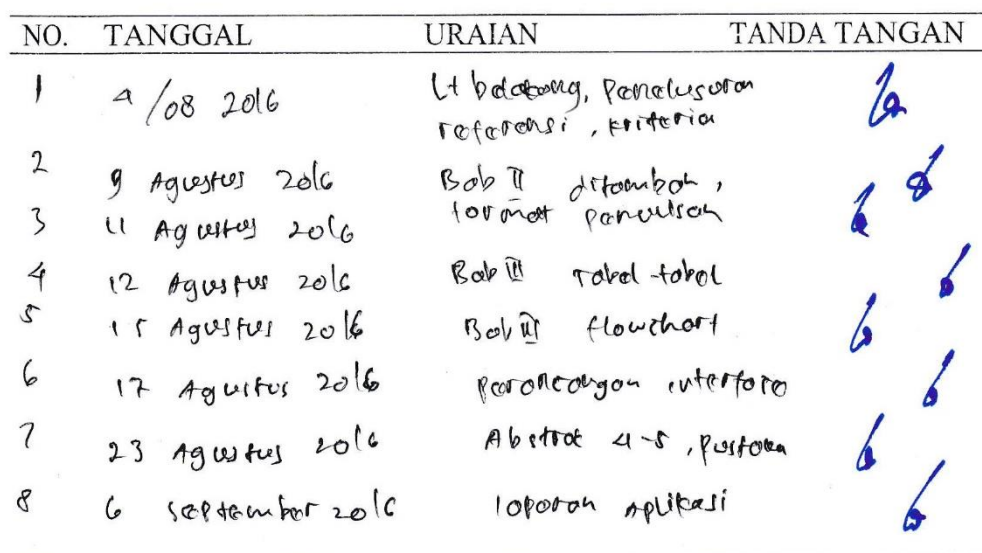 NO. TANGGAL URAIAN TANDA TANGAN
1 4/08 2016 Lt belakang, Penelusuran
referensi, kriteria
2 9 Agustus 2016 Bab II ditambah,
3 11 Agustus 2016 format penulisan
4 12 Agustus 2016 Bab III Tabel-tabel
5 15 Agustus 2016 Bab III flowchart
6 17 Agustus 2016 perancangan interface
7 23 Agustus 2016 Abstrac 4-5, pustaka
8 6 september 2016 laporan aplikasi